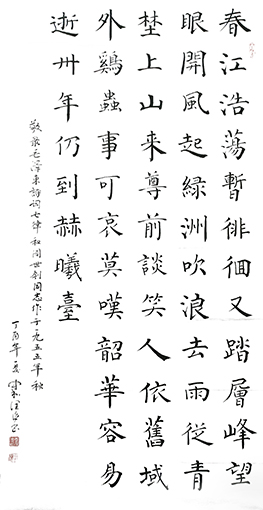 春江浩蕩暫徘徊又踏層峰望
眼開風起綠洲吹浪去雨從青
埜上山來尊前談笑人依舊域
外鷄蟲事可哀莫嘆韶華容易
逝卅年仍到赫曦臺
敬录毛澤東詩詞七律和周世釗同志作于一九五五年秋
丁酉年夏